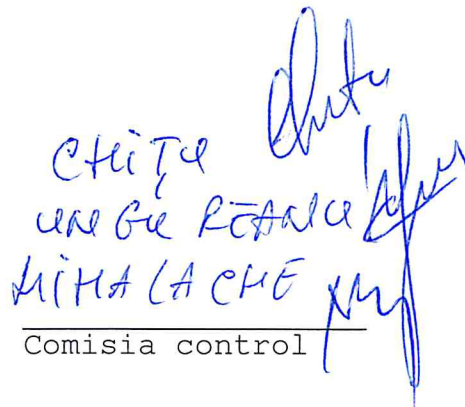 CHIȚU
UNGUREANU
MIHALACHE
Comisia control